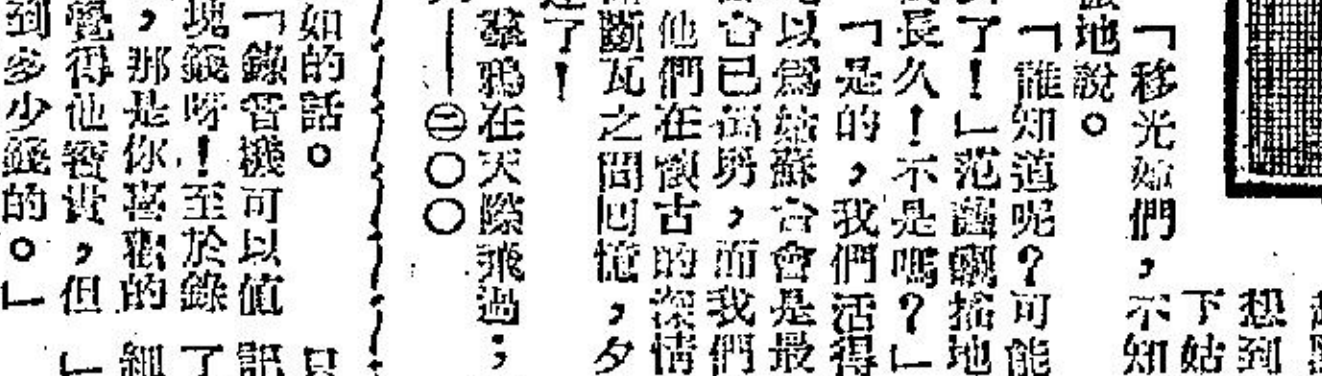 想到
下姑
「移光姊們，不知
地說。
「誰知道呢？可能
了！」范蠡飄搖地
長久！不是嗎？」
「是的，我們活得
以爲姑蘇台會是最
台已，而我們
他們在懷古的深情
斷瓦之間回憶，夕
了！
羣鴉在天際飛過；
——㊁〇〇
如的話。
「錄音機可以值
塊錢呀！至於錄
，那是你喜歡的
覺得他貴，但
到多少錢的。」
只
記
了
細
」